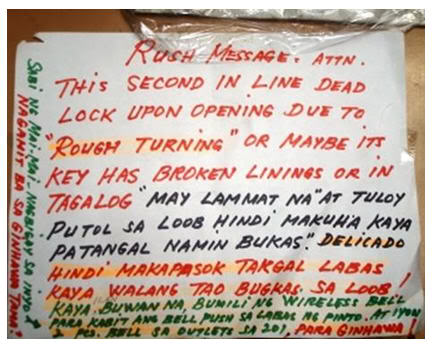 RUSH MESSAGE. ATTN.
THIS SECOND IN LINE DEAD
LOCK UPON OPENING DUE TO
"ROUGH TURNING" OR MAYBE ITS
KEY HAS BROKEN LININGS OR IN
TAGALOG "MAY LAMMAT NA" AT TULOY
PUTOL SA LOOB HINDI MAKUHA KAYA
PATANGAL NAMIN BUKAS". DELICADO
HINDI MAKAPASOK TAKGAL LABAS
KAYA WALANG TAO BUGKAS SA LOOB!
KAYA, BUWAN NA, BUMILI NG WIRELESS BELL
PARA KABIT ANG BELL PUSH SA LABAS NG PINTO. AT IYON
2 PCS. BELL SA OUTLETS SA 201, PARA GINHAWA!
SABI NG MAI-MAI. NAGBIGAY SA INYO
NAGAMIT BA SA GINHAWA TAMA."